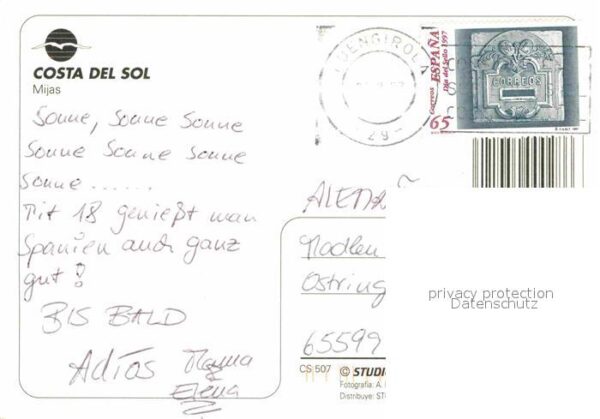 COSTA DEL SOL
Mijas
Sonne, Sonne Sonne
Sonne Sonne Sonne
Sonne ......
Mit 18 genießt man
Spanien auch ganz
gut!
BIS BALD
Adios Mama
Elena
FUENGIROLA
-29-
Correos ESPAÑA
Día del Sello 1997
65
CORREOS
Ostring
65599
privacy protection
Datenschutz
CS 507 © STUDI
Fotografía: A.
Distribuye: ST